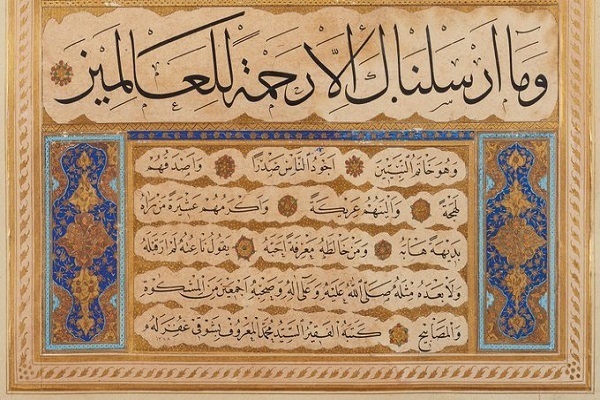 وَمَا اَرْسَلْنَاكَ اِلَّا رَحْمَةً لِلْعَالَمِينَ
وَهُوَ خَاتَمُ النَّبِيِّينَ اَجْوَدُ النَّاسِ صَدْرًا وَاَصْدَقُهُمْ
لَهْجَةً وَاَلْيَنُهُمْ عَرِيكَةً وَاَكْرَمُهُمْ عَشِيرَةً مَنْ رَاٰهُ
بَدِيهَةً هَابَهُ وَمَنْ خَالَطَهُ مَعْرِفَةً اَحَبَّهُ يَقُولُ نَاعِتُهُ لَمْ اَرَ قَبْلَهُ
وَلَا بَعْدَهُ مِثْلَهُ صَلَّى اللهُ عَلَيْهِ وَعَلَى اٰلِهِ وَصَحْبِهِ اَجْمَعِينَ مِنَ الْمِشْكٰوةِ
وَالْمَصَابِيحِ كَتَبَهُ الْفَقِيرُ السَّيِّدُ مُحَمَّدُ الْمَعْرُوفُ بِشَوْقِي غُفِرَ لَهُ